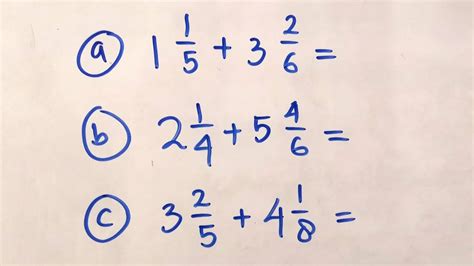 ⓐ 1 1/5 + 3 2/6 =
ⓑ 2 1/4 + 5 4/6 =
ⓒ 3 2/5 + 4 1/8 =